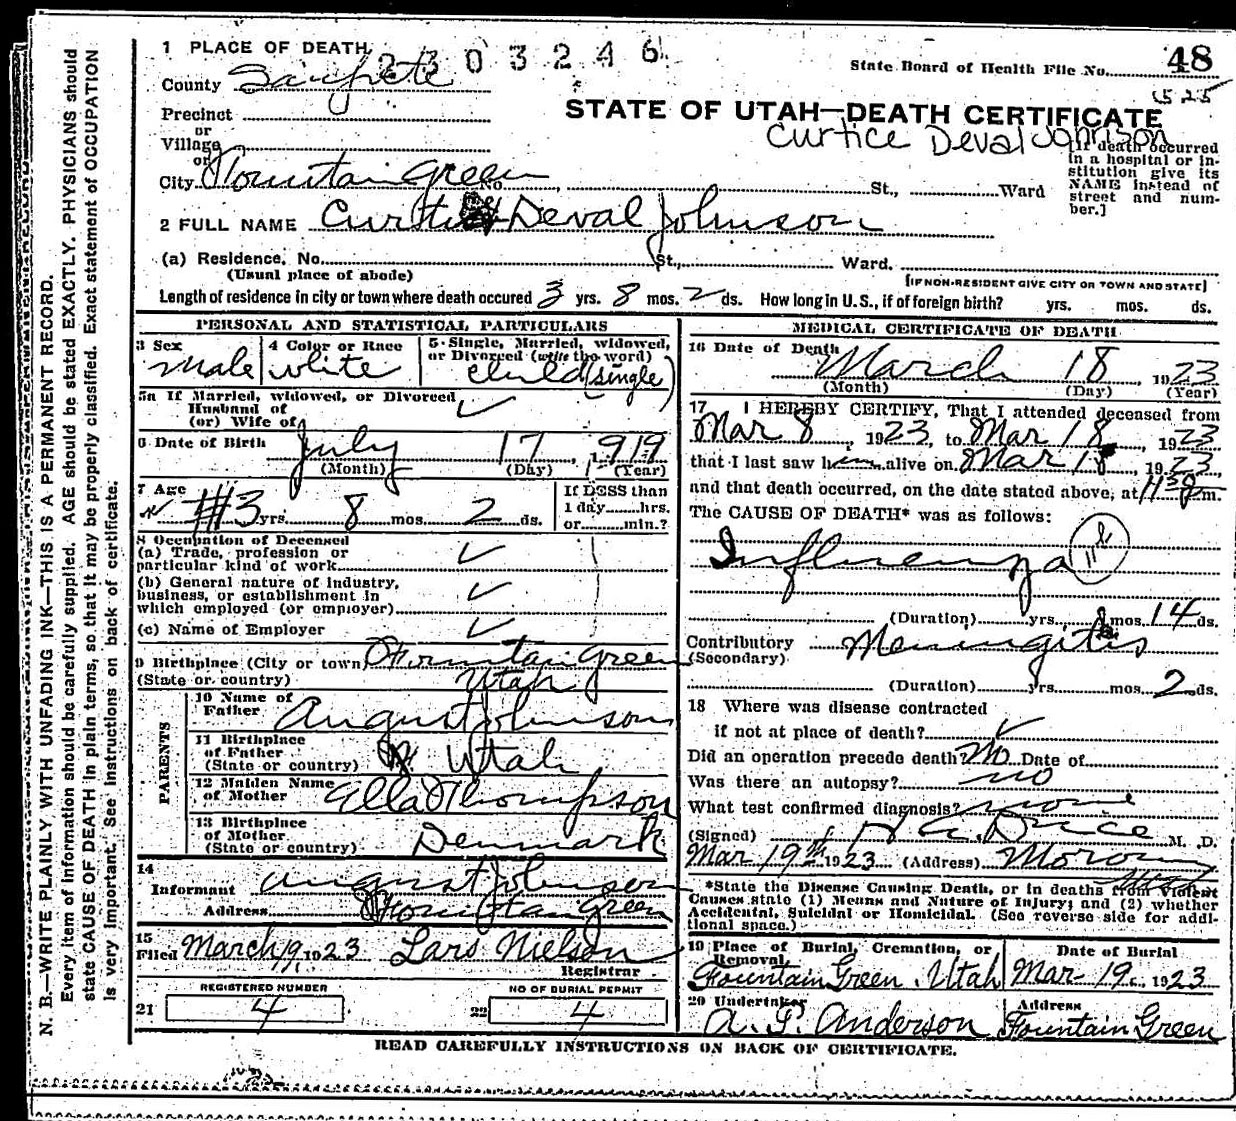 1 PLACE OF DEATH
2303246
State Board of Health File No. 48
County Sanpete
525
STATE OF UTAH—DEATH CERTIFICATE
Curtice Deval Johnson
Precinct
or
Village
or
City Fountain Green No. St., Ward
[If death occurred
in a hospital or in-
stitution give its
NAME instead of
street and num-
ber.]
2 FULL NAME Deval Johnson
(a) Residence. No. St., Ward.
(Usual place of abode)
[IF NON-RESIDENT GIVE CITY OR TOWN AND STATE]
Length of residence in city or town where death occured 3 yrs. 8 mos. 2 ds. How long in U. S., if of foreign birth? yrs. mos. ds.
PERSONAL AND STATISTICAL PARTICULARS
3 Sex 4 Color or Race 5 Single, Married, widowed,
or Divorced (write the word)
Male white child (single)
5a If Married, widowed, or Divorced
Husband of
(or) Wife of
6 Date of Birth July 17, 1919
(Month) (Day) (Year)
7 Age 3 yrs. 8 mos. 2 ds.
If LESS than
1 day hrs.
or min.?
8 Occupation of Deceased
(a) Trade, profession or
particular kind of work
(b) General nature of industry,
business, or establishment in
which employed (or employer)
(c) Name of Employer
9 Birthplace (City or town) Fountain Green
(State or country) Utah
PARENTS
10 Name of
Father August Johnson
11 Birthplace
of Father
(State or country) Utah
12 Maiden Name
of Mother Ella Thompson
13 Birthplace
of Mother
(State or country) Denmark
14
Informant August Johnson
Address Fountain Green
15
Filed March 19, 1923 Lars Nielson
Registrar
REGISTERED NUMBER NO OF BURIAL PERMIT
21 4 22 4
MEDICAL CERTIFICATE OF DEATH
16 Date of Death
March 18, 1923
(Month) (Day) (Year)
17 I HEREBY CERTIFY, That I attended deceased from
Mar 8, 1923, to Mar 18, 1923
that I last saw him alive on Mar 18, 1923
and that death occurred, on the date stated above, at m.
The CAUSE OF DEATH* was as follows:
Influenza 11
(Duration) yrs. mos. 14 ds.
Contributory Meningitis
(Secondary)
(Duration) yrs mos. 2 ds.
18 Where was disease contracted
if not at place of death?
Did an operation precede death? No Date of
Was there an autopsy? no
What test confirmed diagnosis? none
(Signed) M. D.
Mar 19th 1923 (Address) Moroni
Utah
*State the Disease Causing Death, or in deaths from Violent
Causes state (1) Means and Nature of Injury; and (2) whether
Accidental, Suicidal or Homicidal. (See reverse side for addi-
tional space.)
19 Place of Burial, Cremation, or
Removal
Date of Burial
Fountain Green, Utah Mar 19, 1923
20 Undertaker Address
Anderson Fountain Green
READ CAREFULLY INSTRUCTIONS ON BACK OF CERTIFICATE.
N. B.—WRITE PLAINLY WITH UNFADING INK—THIS IS A PERMANENT RECORD.
Every item of information should be carefully supplied. AGE should be stated EXACTLY. PHYSICIANS should
state CAUSE OF DEATH in plain terms, so that it may be properly classified. Exact statement of OCCUPATION
is very important. See instructions on back of certificate.